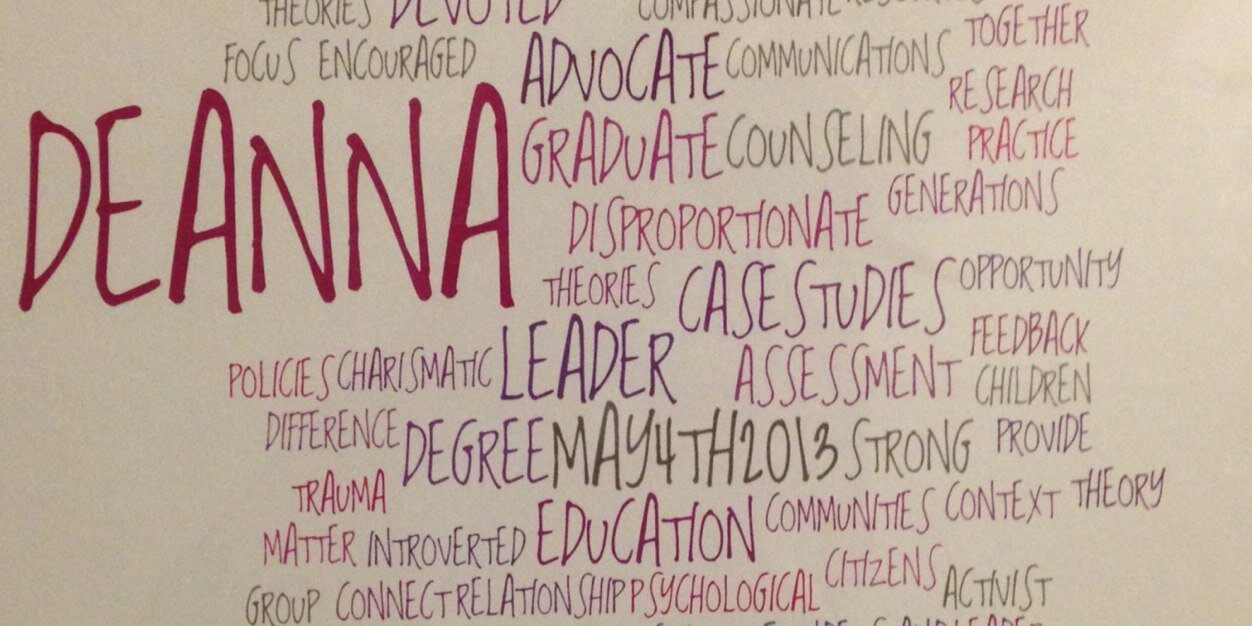 THEORIES DEVOTED COMPASSIONATE
FOCUS ENCOURAGED ADVOCATE COMMUNICATIONS TOGETHER
RESEARCH
DEANNA GRADUATE COUNSELING PRACTICE
DISPROPORTIONATE GENERATIONS
THEORIES CASE STUDIES OPPORTUNITY
POLICIES CHARISMATIC LEADER ASSESSMENT FEEDBACK
CHILDREN
DIFFERENCE DEGREE MAY4TH2013 STRONG PROVIDE
TRAUMA
MATTER INTROVERTED EDUCATION COMMUNITIES CONTEXT THEORY
GROUP CONNECT RELATIONSHIP PSYCHOLOGICAL CITIZENS ACTIVIST